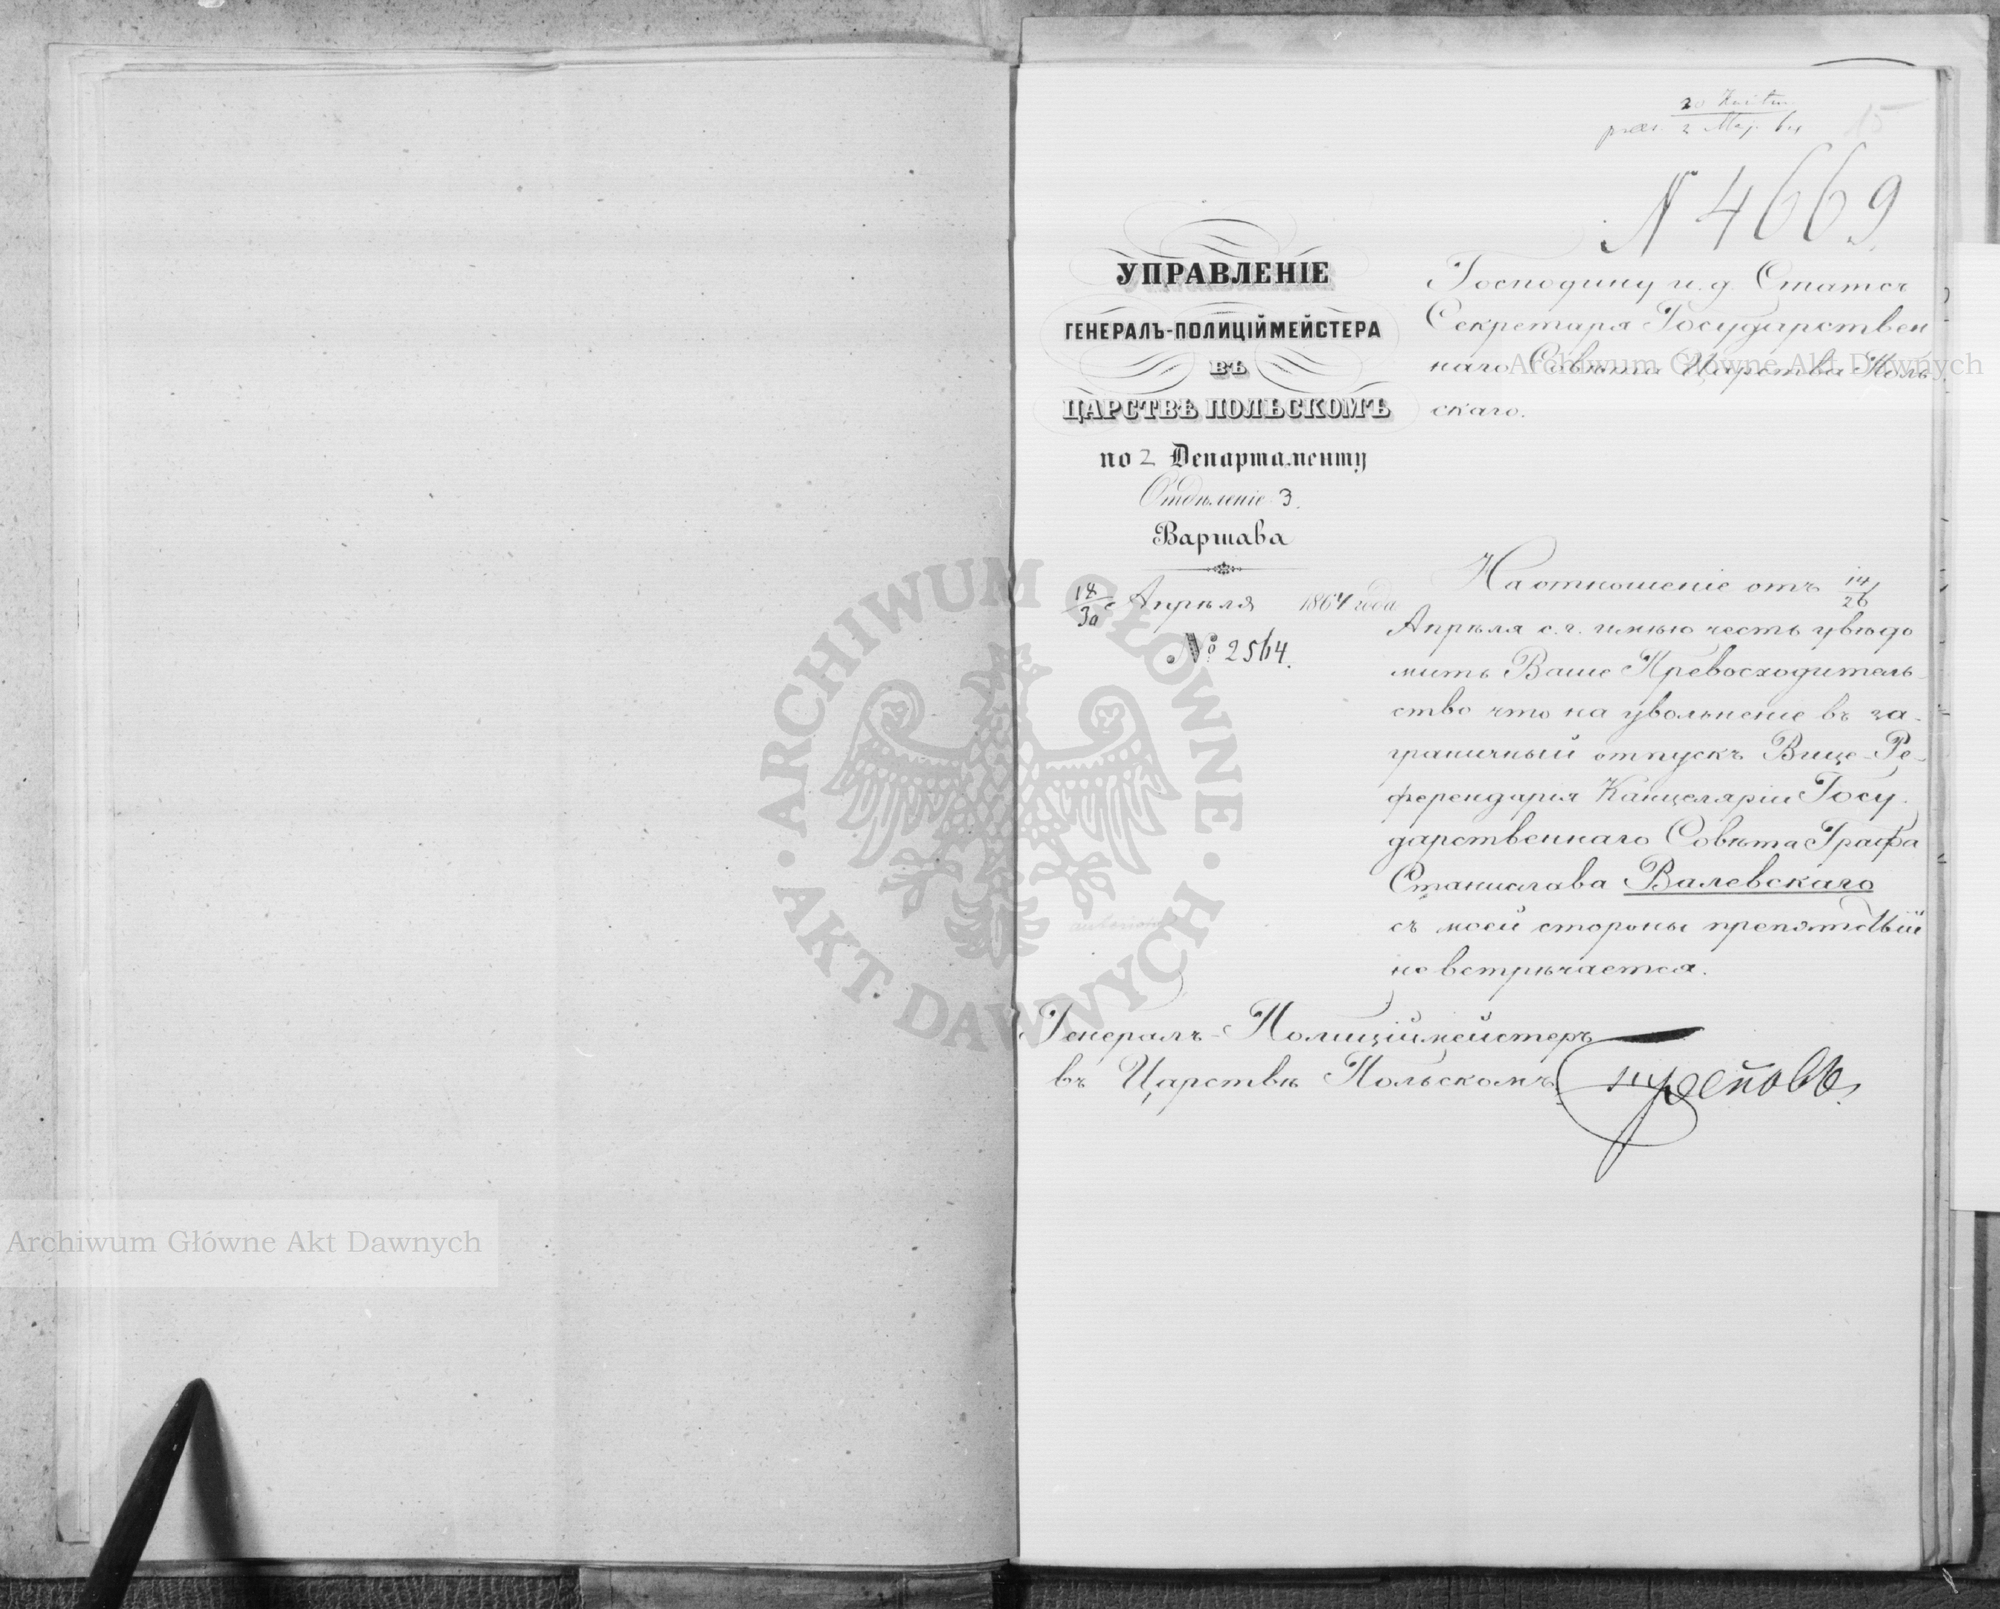 20 Kwietn.
praes. 2 Maj. 64
15
N 4669
УПРАВЛЕНІЕ
ГЕНЕРАЛЪ-ПОЛИЦІЙМЕЙСТЕРА
ВЪ
ЦАРСТВѢ ПОЛЬСКОМЪ
по 2 Департаменту
Отдѣленіе 3.
Варшава
18/30 Апрѣля 1864 года
№ 2564.
Господину и. д. Статсъ
Секретаря Государствен
наго Совѣта Царства Поль
скаго.
На отношеніе отъ 14/26
Апрѣля с. г. имѣю честь увѣдо
мить Ваше Превосходитель
ство что на увольненіе въ за-
граничный отпускъ Вице-Ре-
ферендарія Канцеляріи Госу
дарственнаго Совѣта Графа
Станислава Валевскаго
съ моей стороны препятствій
не встрѣчается.
Генералъ-Полиціймейстеръ
въ Царствѣ Польскомъ Треповъ
Archiwum Główne Akt Dawnych
ARCHIWUM GŁÓWNE · AKT DAWNYCH ·
Archiwum Główne Akt Dawnych